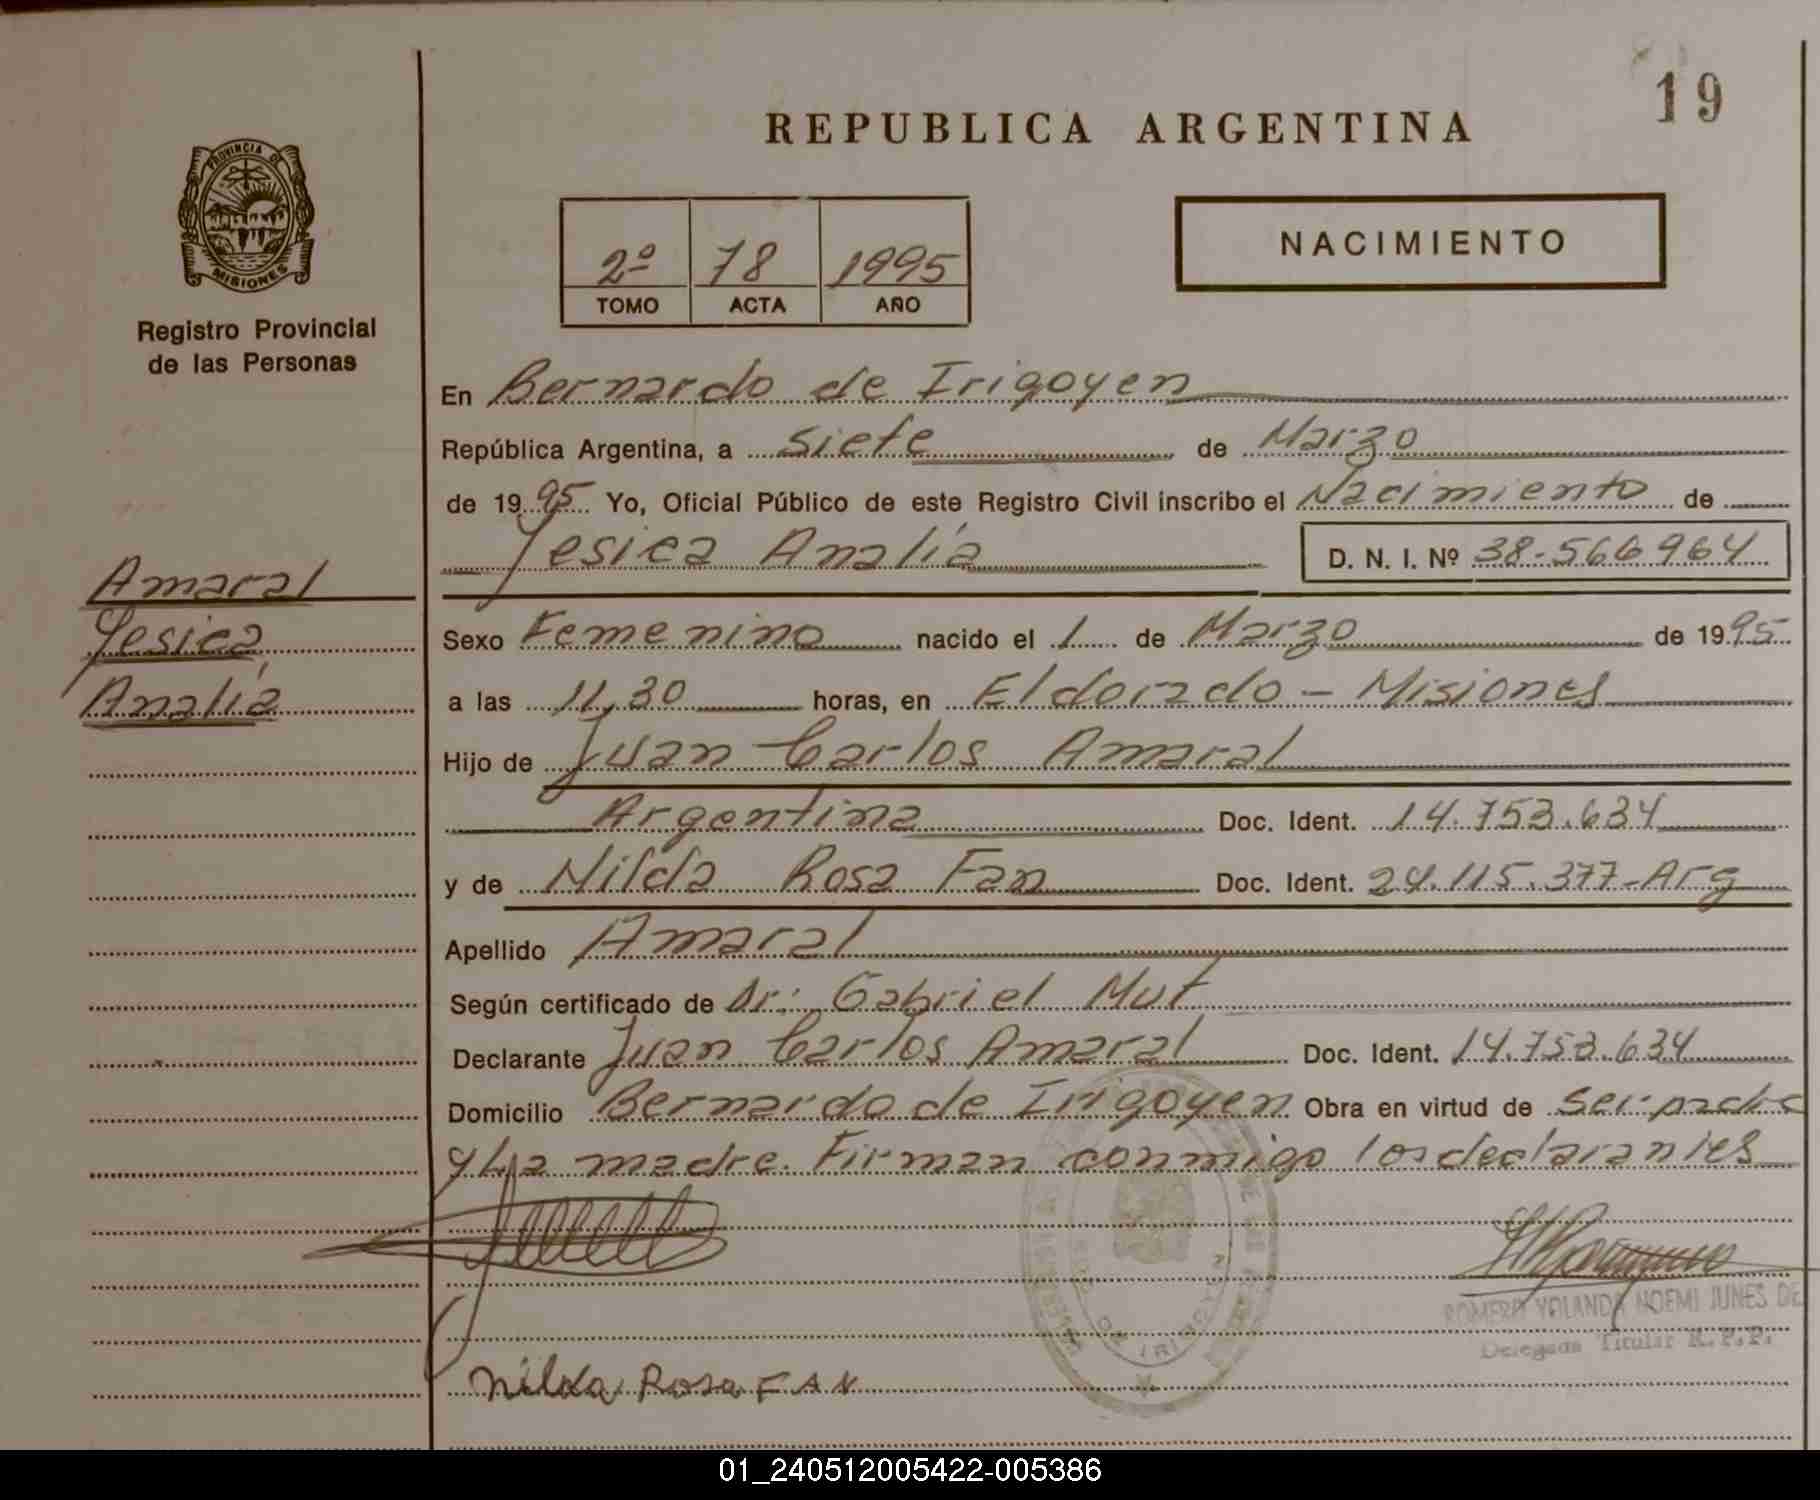 19
REPUBLICA ARGENTINA
PROVINCIA DE
MISIONES
Registro Provincial
de las Personas
2º 78 1995
TOMO ACTA AÑO
NACIMIENTO
En Bernardo de Irigoyen
República Argentina, a siete de Marzo
de 1995 Yo, Oficial Público de este Registro Civil inscribo el Nacimiento de
Yesica Analía D. N. I. Nº 38.566964
Amaral
Yesica
Analía
Sexo Femenino nacido el 1 de Marzo de 1995
a las 11,30 horas, en Eldorado - Misiones
Hijo de Juan Carlos Amaral
Argentina Doc. Ident. 14.753.634
y de Nilda Rosa Fan Doc. Ident. 24.115.377-Arg
Apellido Amaral
Según certificado de Dr: Gabriel Mut
Declarante Juan Carlos Amaral Doc. Ident. 14.753.634
Domicilio Bernardo de Irigoyen Obra en virtud de ser padre
y La madre. Firman conmigo los declarantes
ROMERO YOLANDA NOEMI JUNES DE
Delegada Titular R.P.P.
Nilda Rosa FAN
01_240512005422-005386